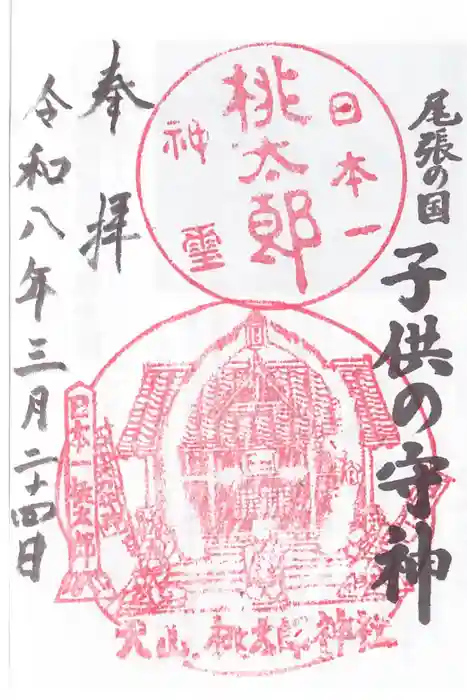 尾張の国
子供の守神
日本一
桃太郎
神霊
奉拝
令和八年三月二十四日
日本一桃太郎
犬山桃太郎神社